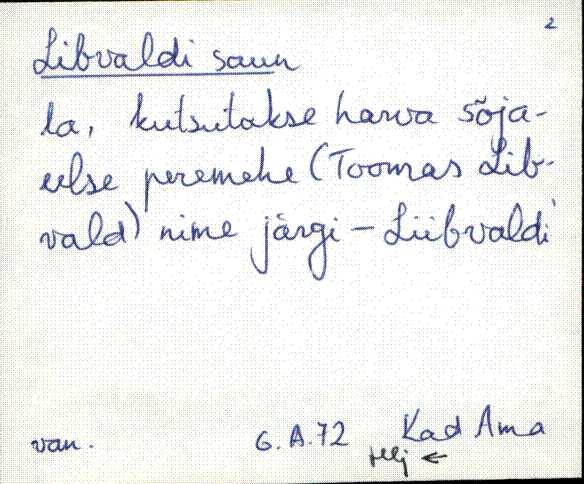 2
Libvaldi saun
la, kutsutakse harva sõja-
eelse peremehe (Toomas Lib-
vald) nime järgi – Liibvaldi
van. G.A.72 Kad Ama
←